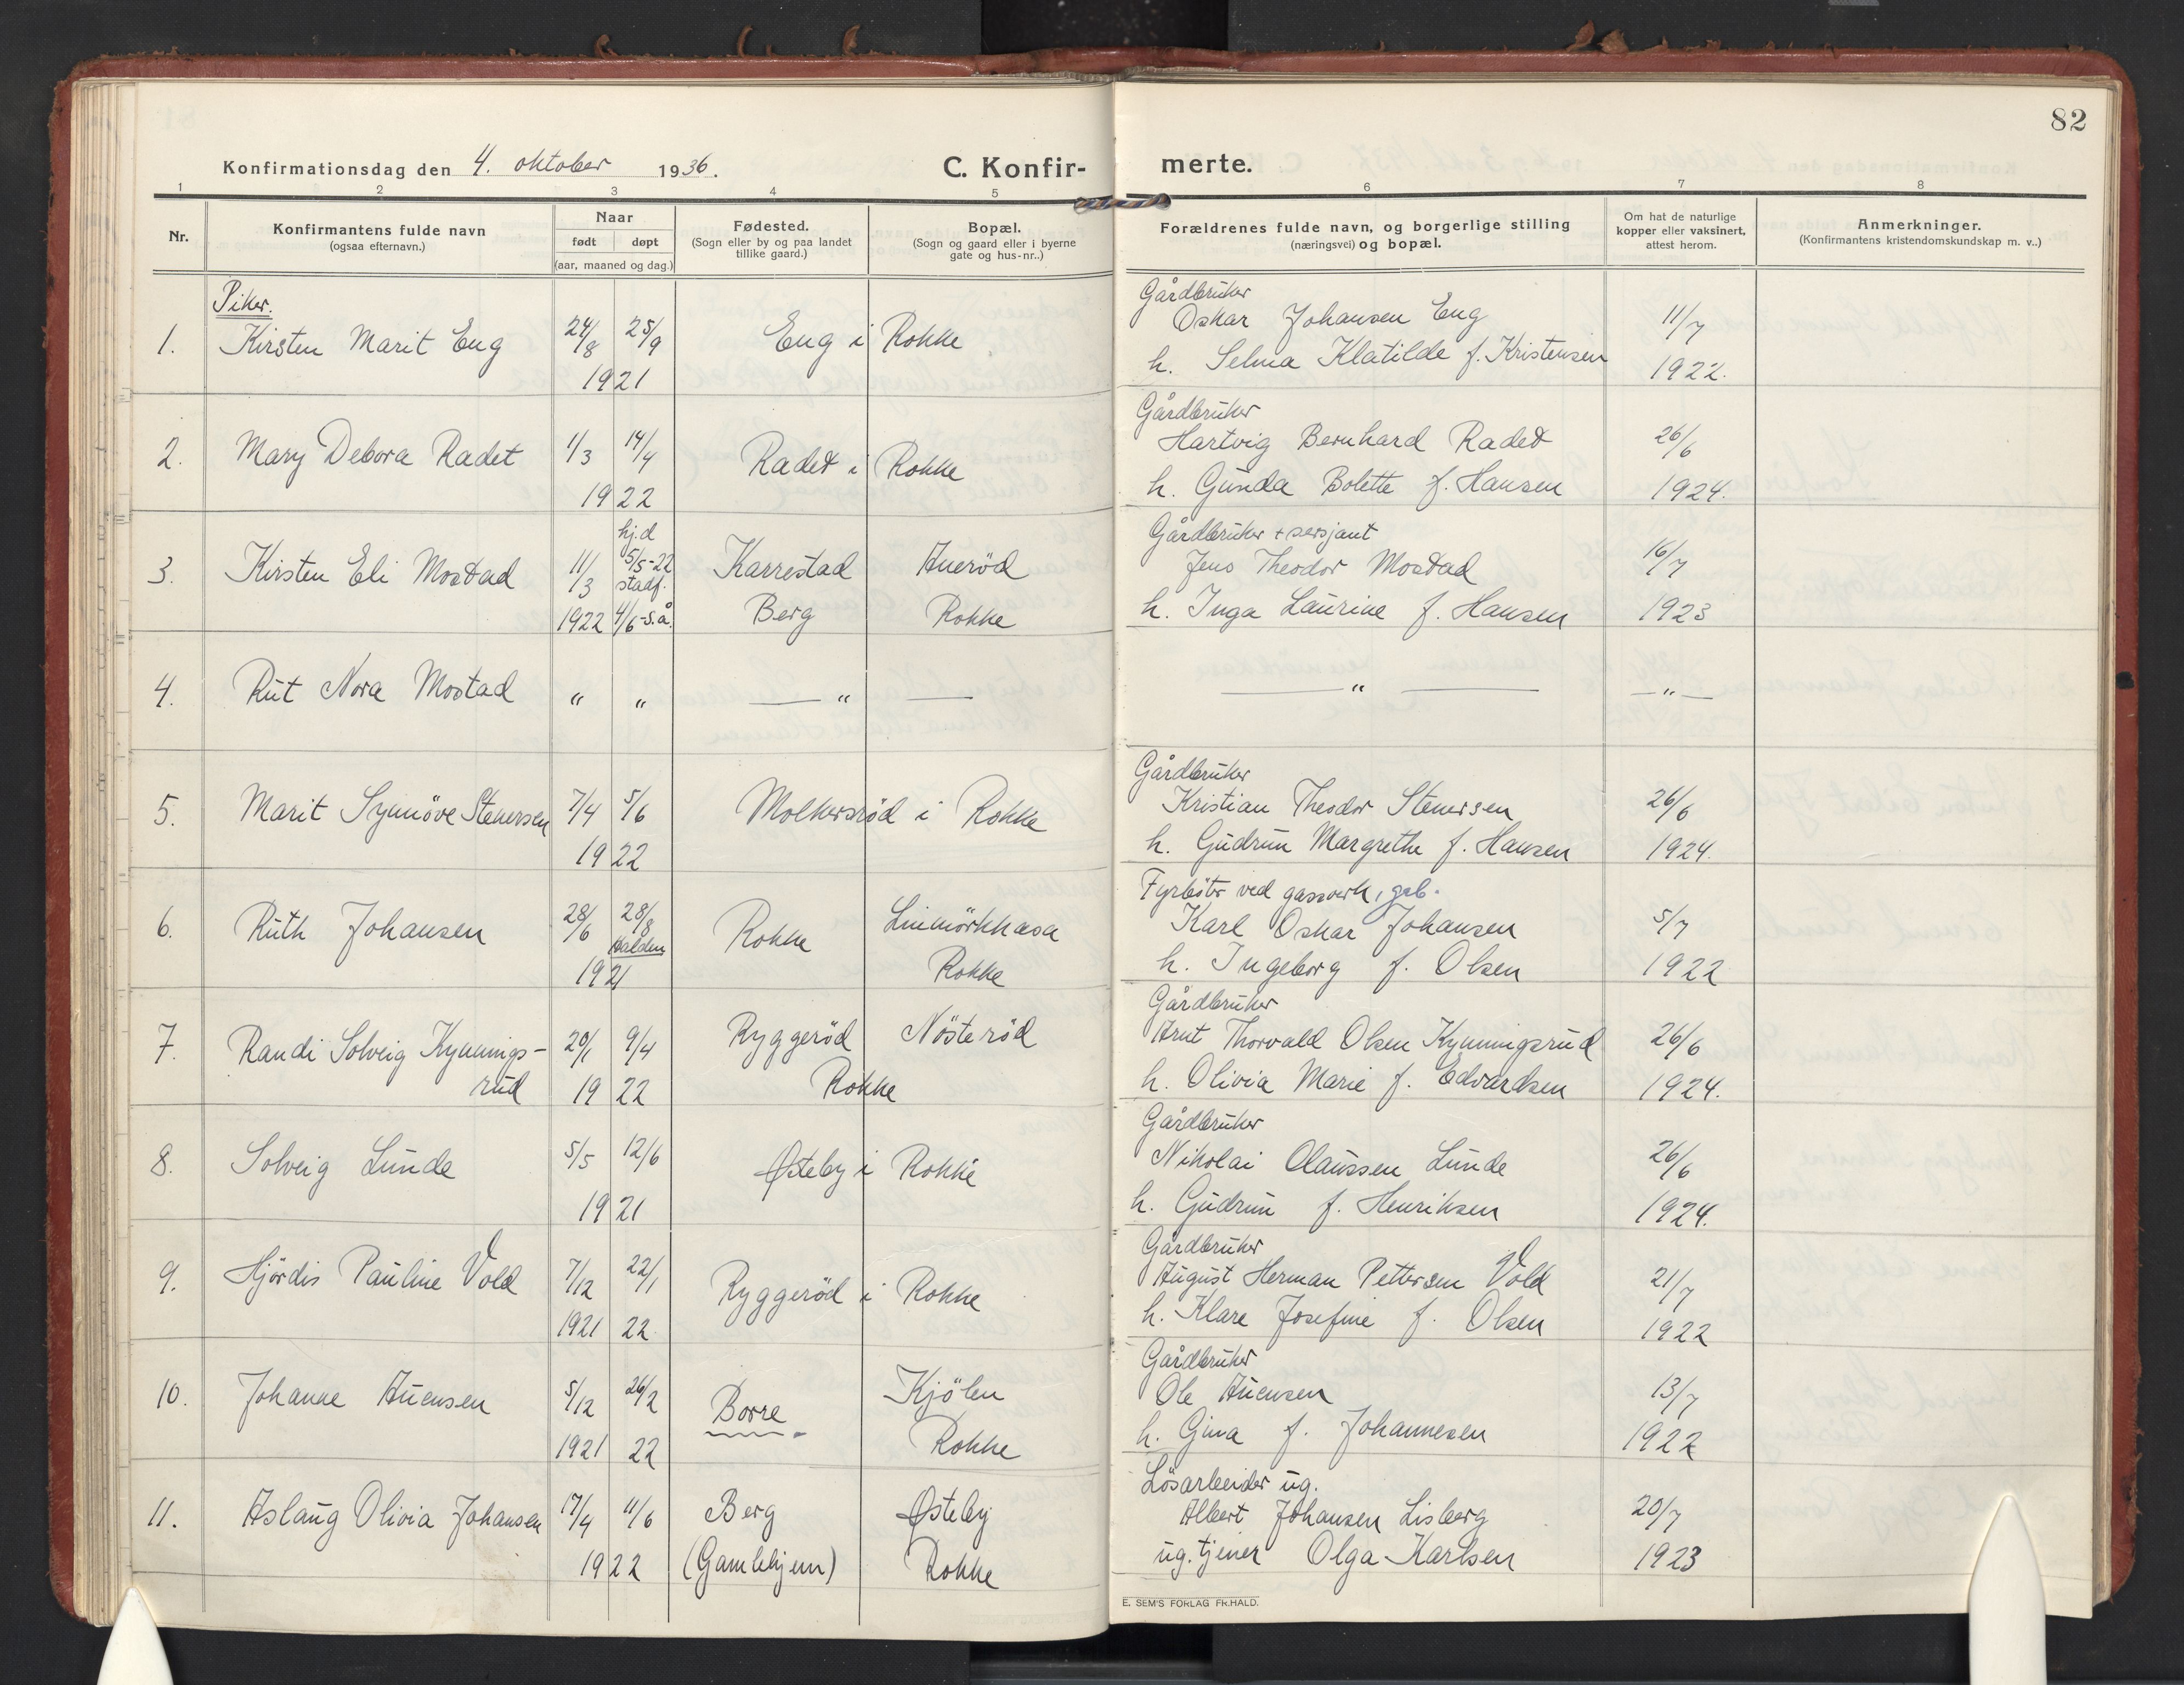 82
Konfirmationsdag den 4. oktober 1936.
C. Konfir-
merte.
1 2 3 4 5 6 7 8
Nr.
Konfirmantens fulde navn
(ogsaa efternavn.)
Naar
født døpt
(aar, maaned og dag.)
Fødested.
(Sogn eller by og paa landet
tillike gaard.)
Bopæl.
(Sogn og gaard eller i byerne
gate og hus-nr..)
Forældrenes fulde navn, og borgerlige stilling
(næringsvei) og bopæl.
Om hat de naturlige
kopper eller vaksinert,
attest herom.
Anmerkninger.
(Konfirmantens kristendomskundskap m. v..)
Piker.
Gårdbruker
1. Kirsten Marit Eng 24/8 25/9 Eng i Rokke Oskar Johansen Eng 11/7
1921 h. Selma Klatilde f. Kristensen 1922.
Gårdbruker
2. Mary Debora Radet 1/3 14/4 Radet i Rokke Hartvig Bernhard Radet 26/6
1922 h. Gunda Bolette f. Hansen 1924.
hj.d Gårdbruker + sersjant
3. Kirsten Eli Mostad 11/3 5/5-22 Karrestad Auerød Jens Theodor Mostad 16/7
stadf.
1922 4/6-s.å. Berg Rokke h. Inga Laurine f. Hansen 1923
4. Rut Nora Mostad " " — " — — " — — " —
Gårdbruker
5. Marit Synnøve Stenersen 7/4 5/6 Molkersrød i Rokke Kristian Theodor Stenersen 26/6
1922 h. Gudrun Margrethe f. Hansen 1924.
Fyrbøter ved gassverk, gsb.
6. Ruth Johansen 28/6 28/8 Rokke Linmörkkasa Karl Oskar Johansen 5/7
Halden
1921 Rokke h. Ingeborg f. Olsen 1922
Gårdbruker
7. Randi Solveig Kynnings- 20/1 9/4 Ryggerød Nösterød Arnt Thorvald Olsen Kynningsrud 26/6
rud 1922 Rokke h. Olivia Marie f. Edvardsen 1924.
Gårdbruker
8. Solveig Lunde 5/5 12/6 Østeby i Rokke Nikolai Olaussen Lunde 26/6
1921 h. Gudrun f. Henriksen 1924.
Gårdbruker
9. Hjørdis Pauline Vold 7/12 22/1 Ryggerød i Rokke August Herman Pettersen Vold 21/7
1921 22 h. Klare Josefine f. Olsen 1922
Gårdbruker
10. Johanne Auensen 5/12 26/2 Borre Kjölen Ole Auensen 13/7
1921 22 Rokke h. Gina f. Johannesen 1922
Lösarbeider ug.
11. Aslaug Olivia Johansen 17/4 11/6 Berg Østeby Albert Johansen Lisberg 20/7
1922 (Gamlehjem) Rokke ug. tjener Olga Karlsen 1923
E. SEM'S FORLAG FR.HALD.